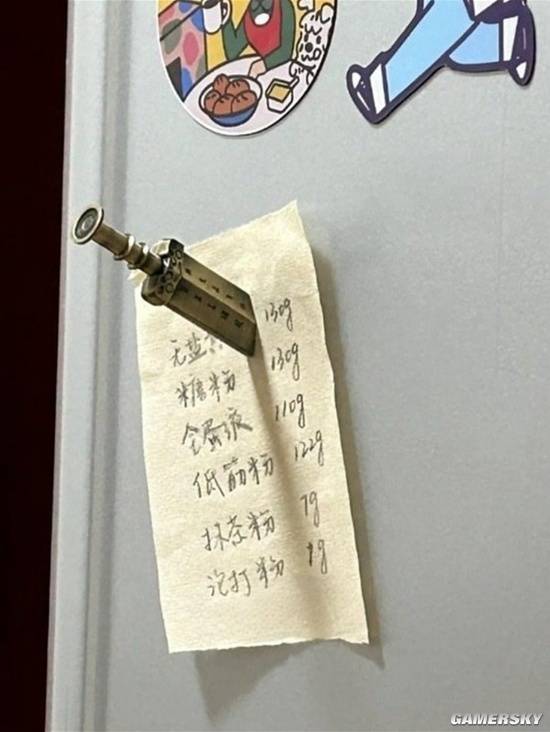 无盐 130g
糖粉 130g
全蛋液 110g
低筋粉 122g
抹茶粉 7g
泡打粉 1g
GAMERSKY